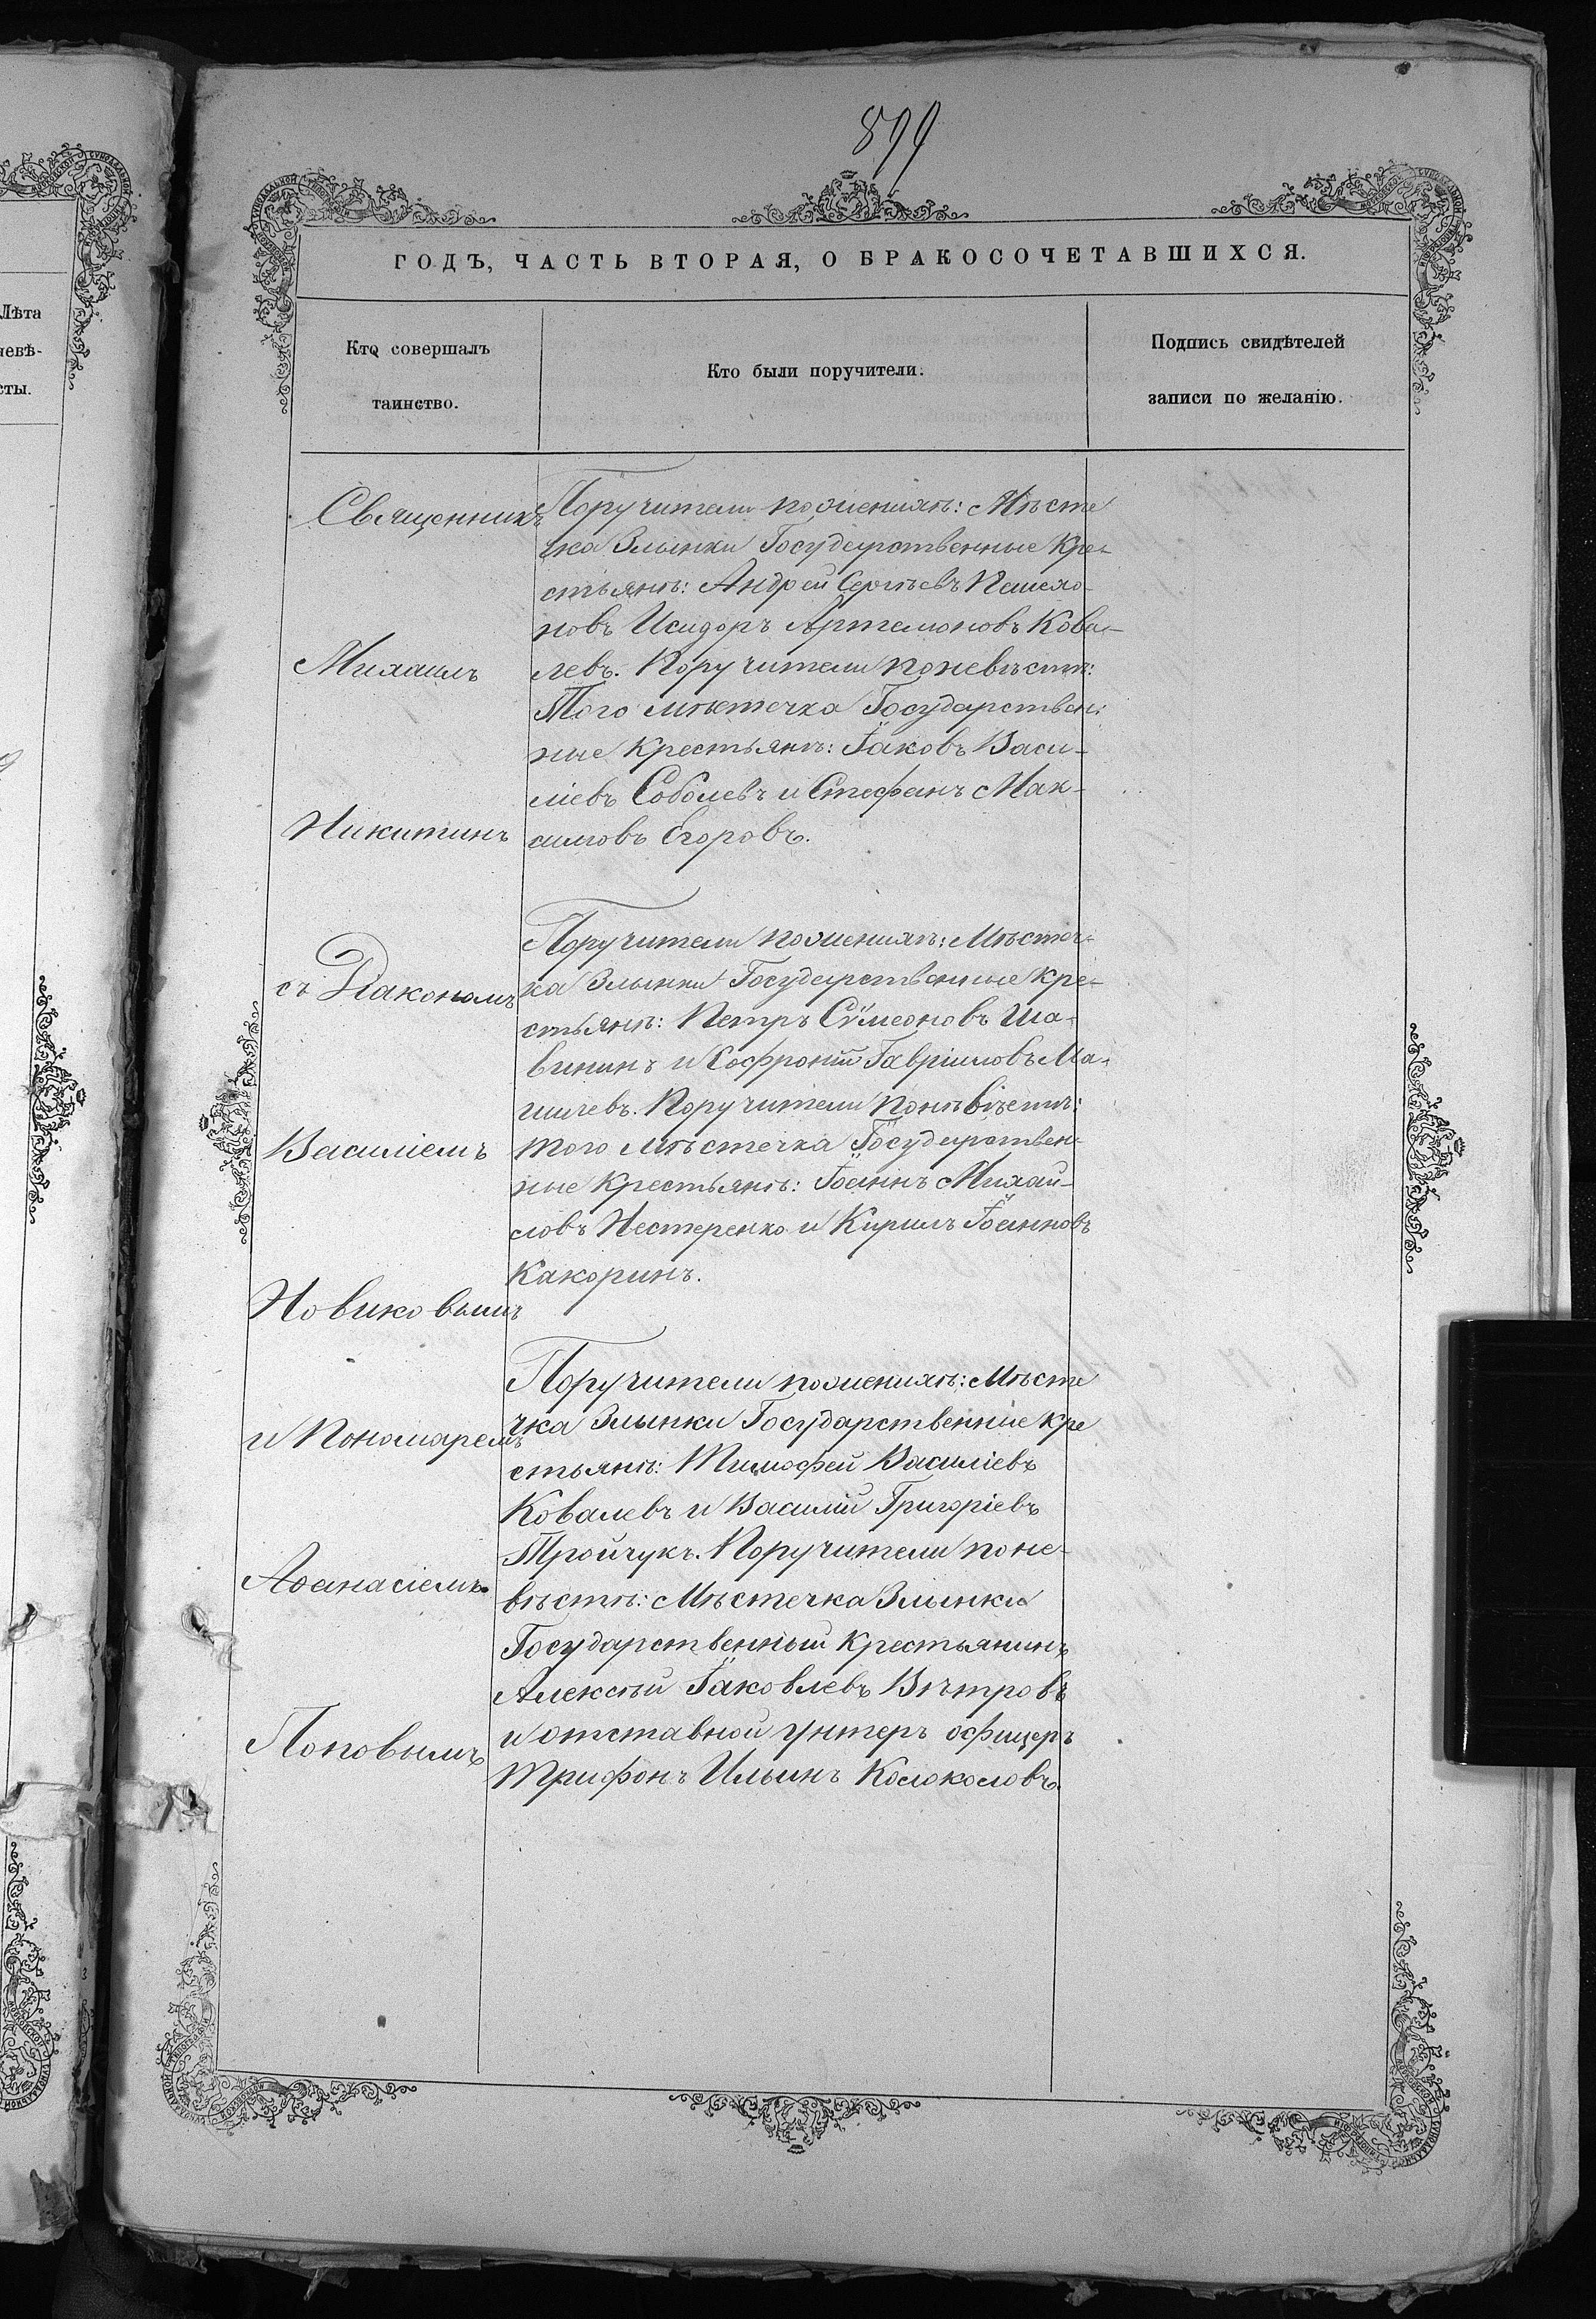 899
ГОДЪ, ЧАСТЬ ВТОРАЯ, О БРАКОСОЧЕТАВШИХСЯ.
Лѣта
невѣ-
сты.
Кто совершалъ
таинство.
Кто были поручители.
Подпись свидѣтелей
записи по желанію.
Священникъ
Михаилъ
Никитинъ
съ Діакономъ
Василіемъ
Новиковымъ
и Пономаремъ
Аѳанасіемъ
Поповымъ
Поручители по женихѣ: Мѣсте
чка Злынки Государственные Кре-
стьянѣ: Андрей Сергѣевъ Пешехо-
новъ Исидоръ Артемоновъ Кова-
левъ. Поручители по невѣстѣ:
Того мѣстечка Государствен-
ные Крестьянѣ: Іаковъ Васи-
ліевъ Соболевъ и Стефанъ Мак-
симовъ Егоровъ.
Поручители по женихѣ: Мѣстеч-
ка Злынки Государственные Кре-
стьянѣ: Петръ Сѵмеоновъ Ша-
винин и Софроній Гавріиловъ Ма-
шичевъ. Поручители по невѣстѣ:
того мѣстечка Государствен-
ные Крестьянѣ: Іоаннъ Михай-
ловъ Нестеренко и Кирилъ Іоанновъ
Какоринъ.
Поручители по женихѣ: Мѣсте
чка Злынки Государственніе Кре
стьянѣ: Тимофей Василіевъ
Ковалевъ и Василій Григоріевъ
Тройчукъ. Поручители по не-
вѣстѣ: Мѣстечка Злынки
Государственный Крестьянинъ
Алексѣй Іаковлевъ Вѣтровъ
и отставной унтеръ офицеръ
Трифонъ Ильинъ Колоколовъ.